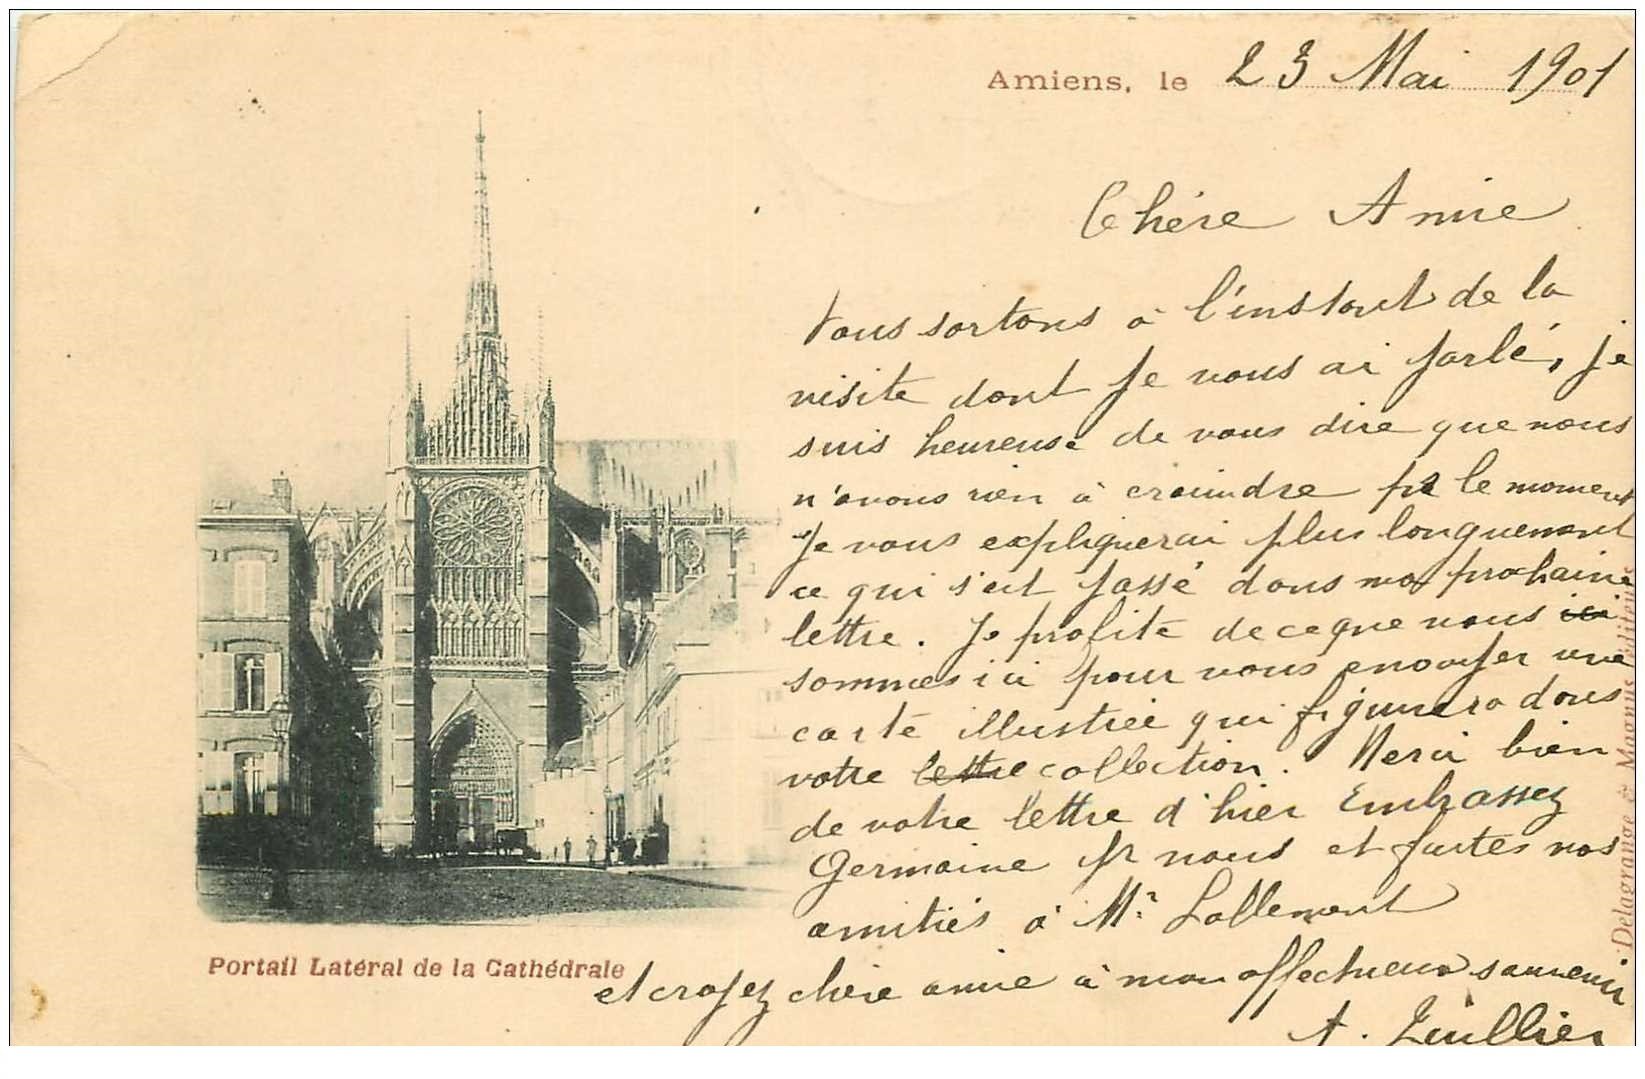 Amiens, le 23 Mai 1901
Chère Amie
Nous sortons à l'instant de la
visite dont je vous ai parlé, je
suis heureuse de vous dire que nous
n'avons rien à craindre pr le moment
Je vous expliquerai plus longuement
ce qui s'est passé dans ma prochaine
lettre. Je profite de ce que nous ici
sommes ici pour vous envoyer une
carte illustrée qui figurera dans
votre lettre collection. Merci bien
de votre lettre d'hier Embrassez
Germaine pr nous et faites nos
amitiés à Mr Lallement
et croyez chère amie à mon affectueux souvenir
A.
Portail Latéral de la Cathédrale
Delagrange & Magnus